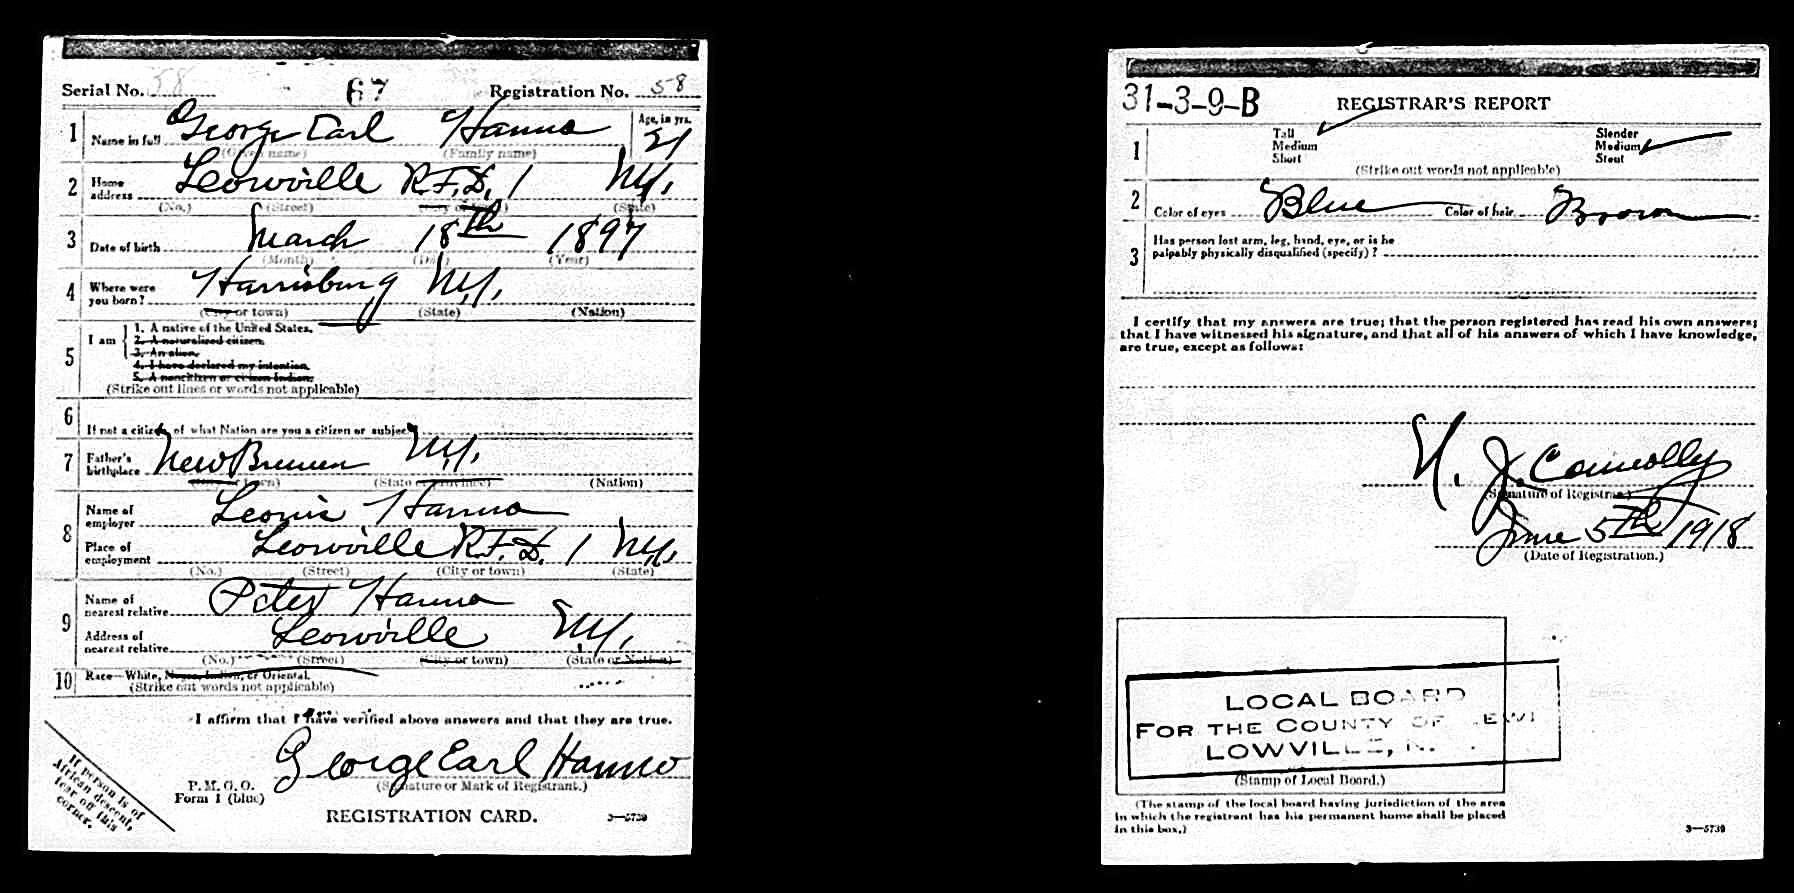 Serial No. 58 67 Registration No. 58
1 Name in full George Earl Hanno Age, in yrs. 21
(Given name) (Family name)
2 Home address Lowville R.F.D. 1 N.Y.
(No.) (Street) (City or town) (State)
3 Date of birth March 18th 1897
(Month) (Day) (Year)
4 Where were you born? Harrisburg N.Y.
(City or town) (State) (Nation)
5 I am
1. A native of the United States.
2. A naturalized citizen.
3. An alien.
4. I have declared my intention.
5. A noncitizen or citizen Indian.
(Strike out lines or words not applicable)
6 If not a citizen, of what Nation are you a citizen or subject
7 Father's birthplace New Bremen N.Y.
(City or town) (State or province) (Nation)
8 Name of employer Leonis Hanno
Place of employment Lowville R.F.D. 1 N.Y.
(No.) (Street) (City or town) (State)
9 Name of nearest relative Peter Hanno
Address of nearest relative Lowville N.Y.
(No.) (Street) (City or town) (State or Nation)
10 Race—White, Negro, Indian, or Oriental.
(Strike out words not applicable)
I affirm that I have verified above answers and that they are true.
George Earl Hanno
P. M. G. O.
Form 1 (blue)
(Signature or Mark of Registrant.)
REGISTRATION CARD.
3—5739
If person is of
African descent,
tear off this
corner.
31-3-9-B REGISTRAR'S REPORT
1 Tall Slender
Medium Medium
Short Stout
(Strike out words not applicable)
2 Color of eyes Blue Color of hair Brown
3 Has person lost arm, leg, hand, eye, or is he
palpably physically disqualified (specify)?
I certify that my answers are true; that the person registered has read his own answers;
that I have witnessed his signature, and that all of his answers of which I have knowledge,
are true, except as follows:
N. J. Connolly
(Signature of Registrar.)
June 5th 1918
(Date of Registration.)
LOCAL BOARD
FOR THE COUNTY OF LEWI
LOWVILLE, N.
(Stamp of Local Board.)
(The stamp of the local board having jurisdiction of the area
in which the registrant has his permanent home shall be placed
in this box.)
3—5739